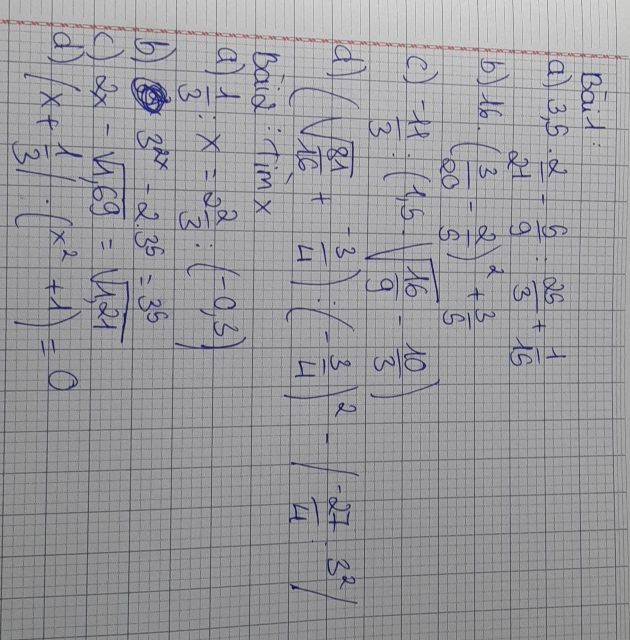 Bài 1:
a) 3,5 . 2/21 - 5/9 : 25/3 + 1/15
b) 16 . (3/20 - 2/5)² + 3/5
c) -11/3 : (1,5 . √16/9 - 10/3)
d) (√81/16 + -3/4) : (-3/4)² - |-27/4 : 3²|
Bài 2: Tìm x
a) 1/3 : x = 2 2/3 : (-0,3)
b) 3²ˣ - 2.3⁵ = 3⁵
c) 2x - √1,69 = √1,21
d) (x + 1/3) . (x² + 1) = 0